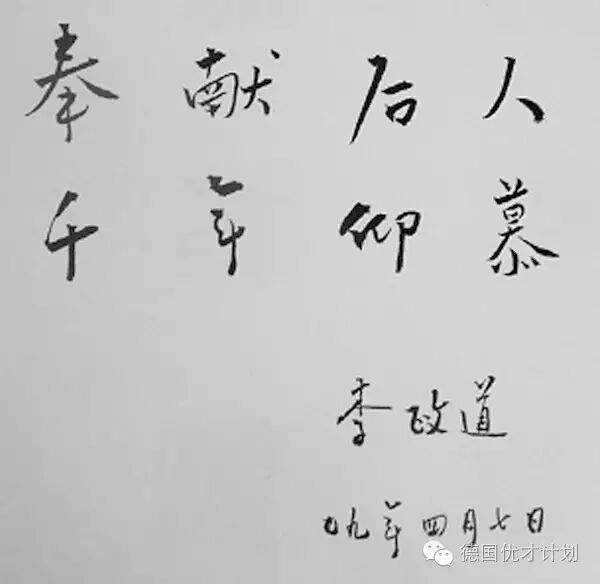 奉献后人
千年仰慕
李政道
七九年四月七日
德国优才计划